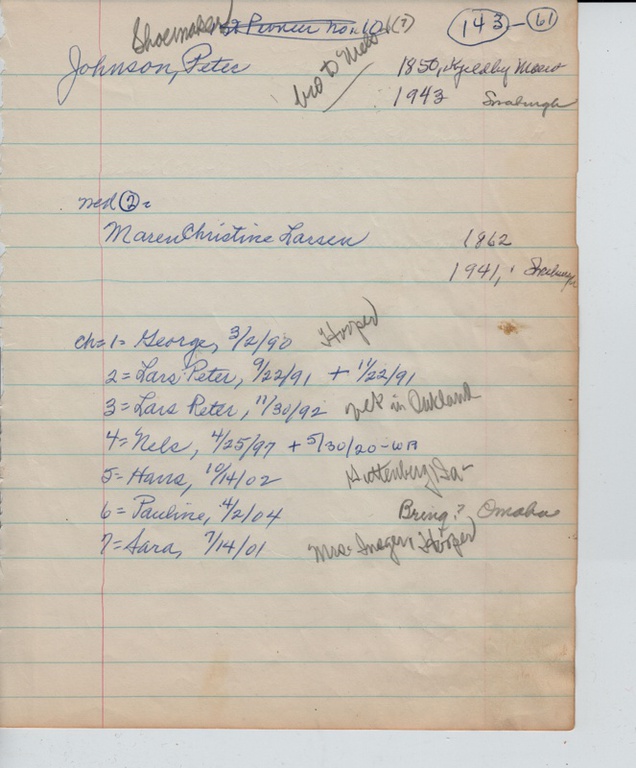 Shoemaker 143-61
Johnson, Peter bro to 1850,
1943
med 2=
Maren Christine Larsen 1862
1941,
ch= 1= George, 3/2/90 Hooper
2= Lars Peter, 9/22/91 + 11/22/91
3= Lars Peter, 11/30/92 in Oakland
4= Nels, 4/25/97 + 5/30/20-
5= Hans, 10/14/02 Guttenberg, Ia-
6= Pauline, 4/2/04 Bring? Omaha
7= Sara, 7/14/01 Mrs. Hooper